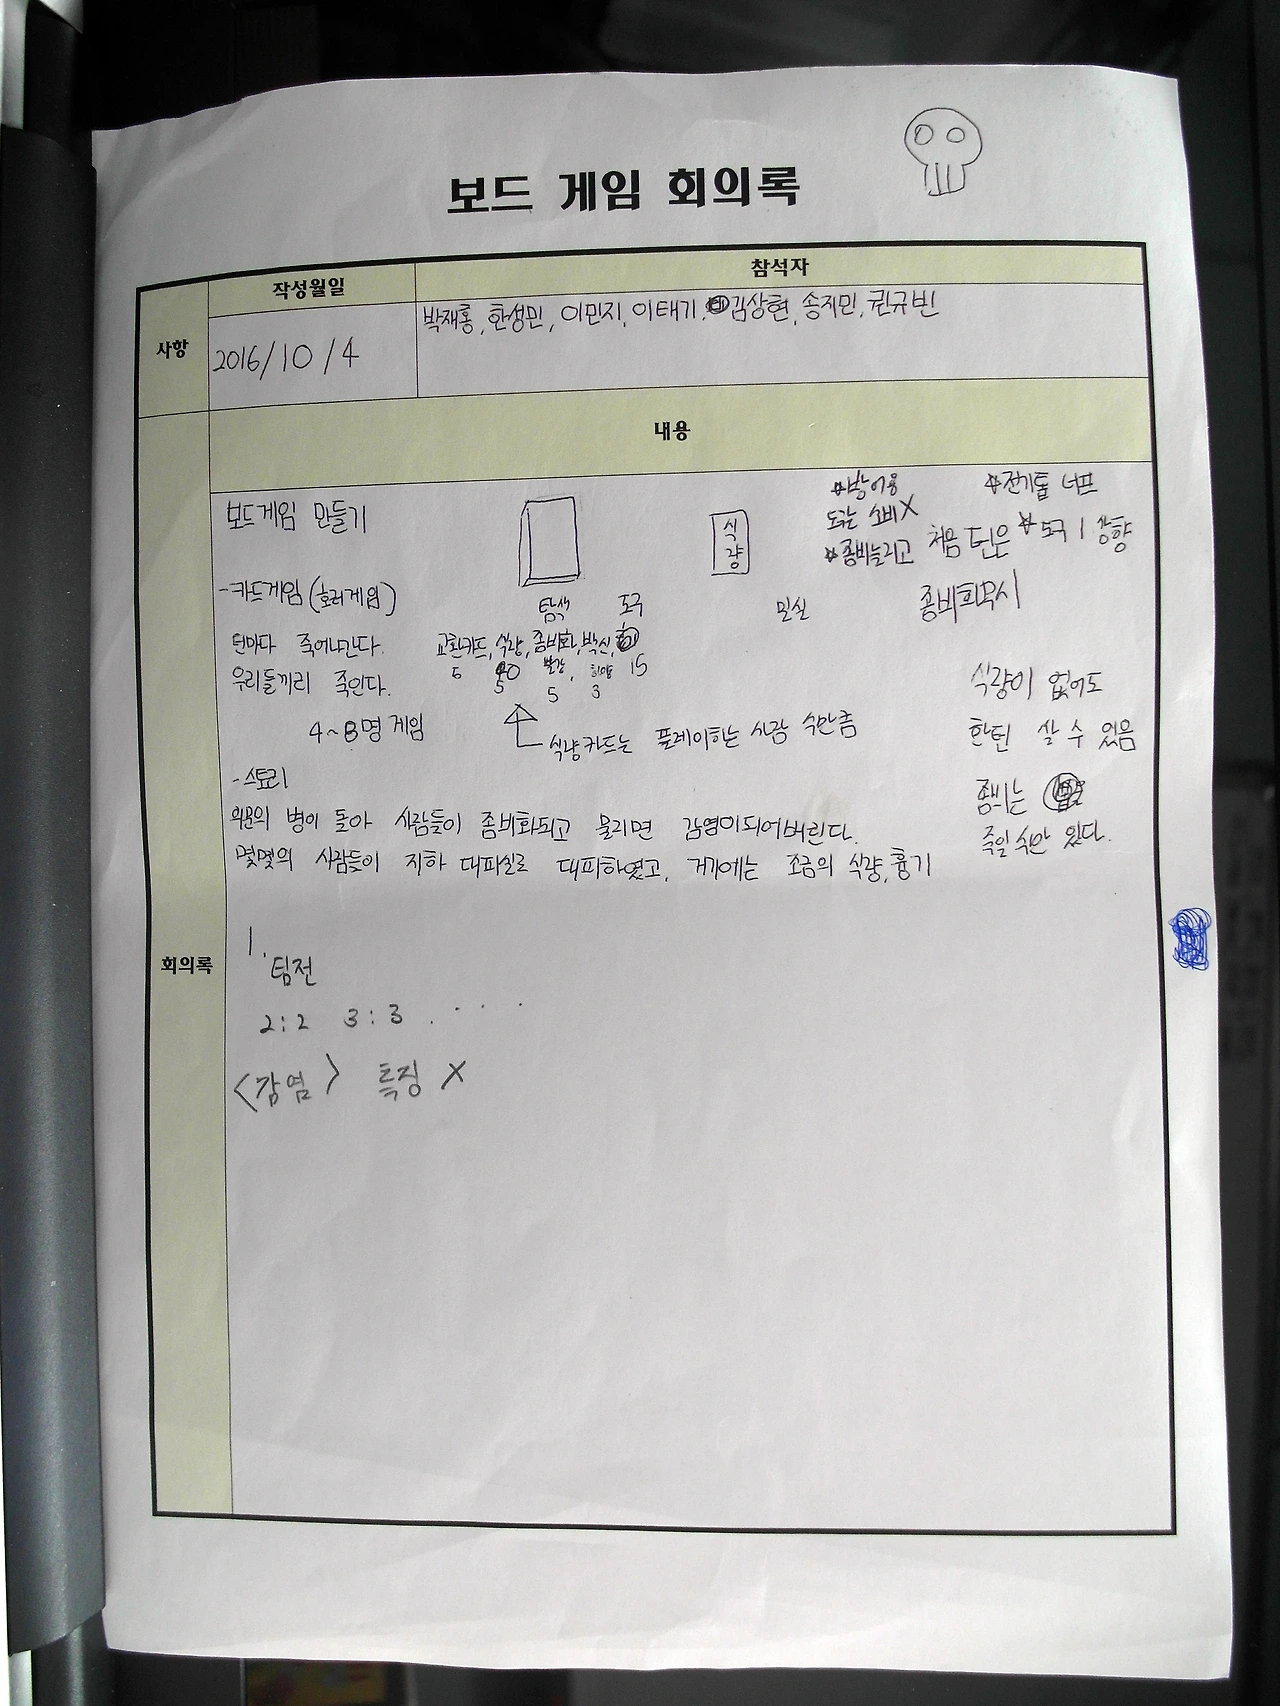 보드 게임 회의록
작성월일
참석자
사항
2016/10/4
박재홍, 한성민, 이민지, 이태기, 김상현, 송지민, 권규빈
내용
회의록
보드게임 만들기
식량
☆방어용
도구는 소비X
☆좀비늘리고
☆전기톱 너프
처음 턴은 ☆도구 1 상향
-카드게임(호러게임)
탐색 도구
밀실
턴마다 죽어나간다.
교환카드, 식량, 좀비화, 백신,
우리들끼리 죽인다.
5 5 5 3 15
4~8명 게임
식량카드는 플레이하는 사람 수만큼
식량이 없어도
한턴 살 수 있음
좀비는
죽일 수만 있다.
-스토리
의문의 병이 돌아 사람들이 좀비화되고 물리면 감염이되어버린다.
몇몇의 사람들이 지하 대피실로 대피하였고, 거기에는 조금의 식량, 흉기
1.
팀전
2:2 3:3 . . . .
<감염> 특징 X